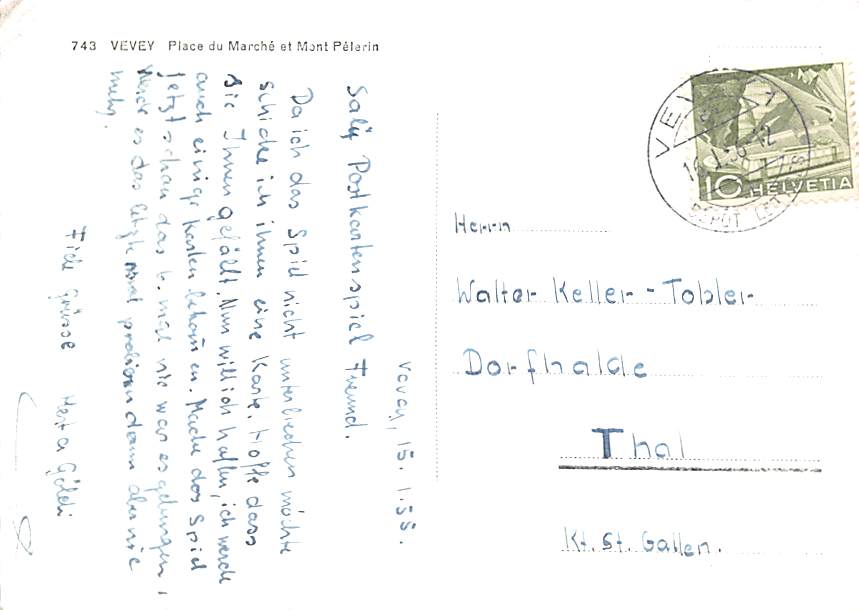 743 VEVEY Place du Marché et Mont Pélerin
Vevey, 15.1.55.
Salü Postkartenspiel Freund.
Da ich das Spiel nicht unterbrechen möchte
schicke ich ihnen eine Karte. Hoffe dass
sie Ihnen gefällt. Nun will ich hoffen, ich werde
auch einige Karten bekommen. Mache das Spiel
jetzt schon das 6. mal nie war es gelungen,
werde es das letzte mal probieren dann aber nie
mehr.
Fiele grüsse Herta Göldi
VEVEY 1
HELVETIA
10
Herrn
Walter Keller-Tobler
Dorfhalde
Thal
Kt. St. Gallen.